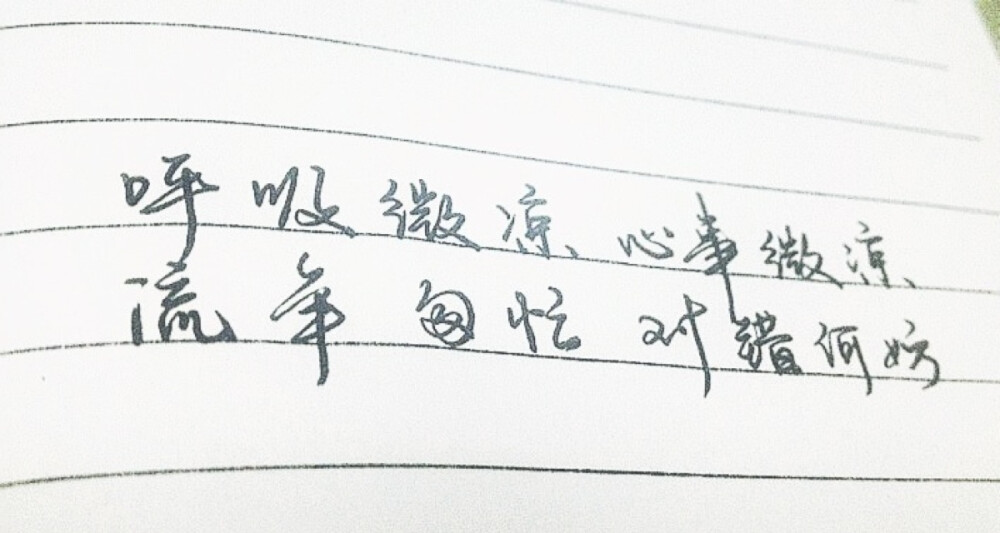 呼吸微凉、心事微凉、
流年匆忙 对错何妨